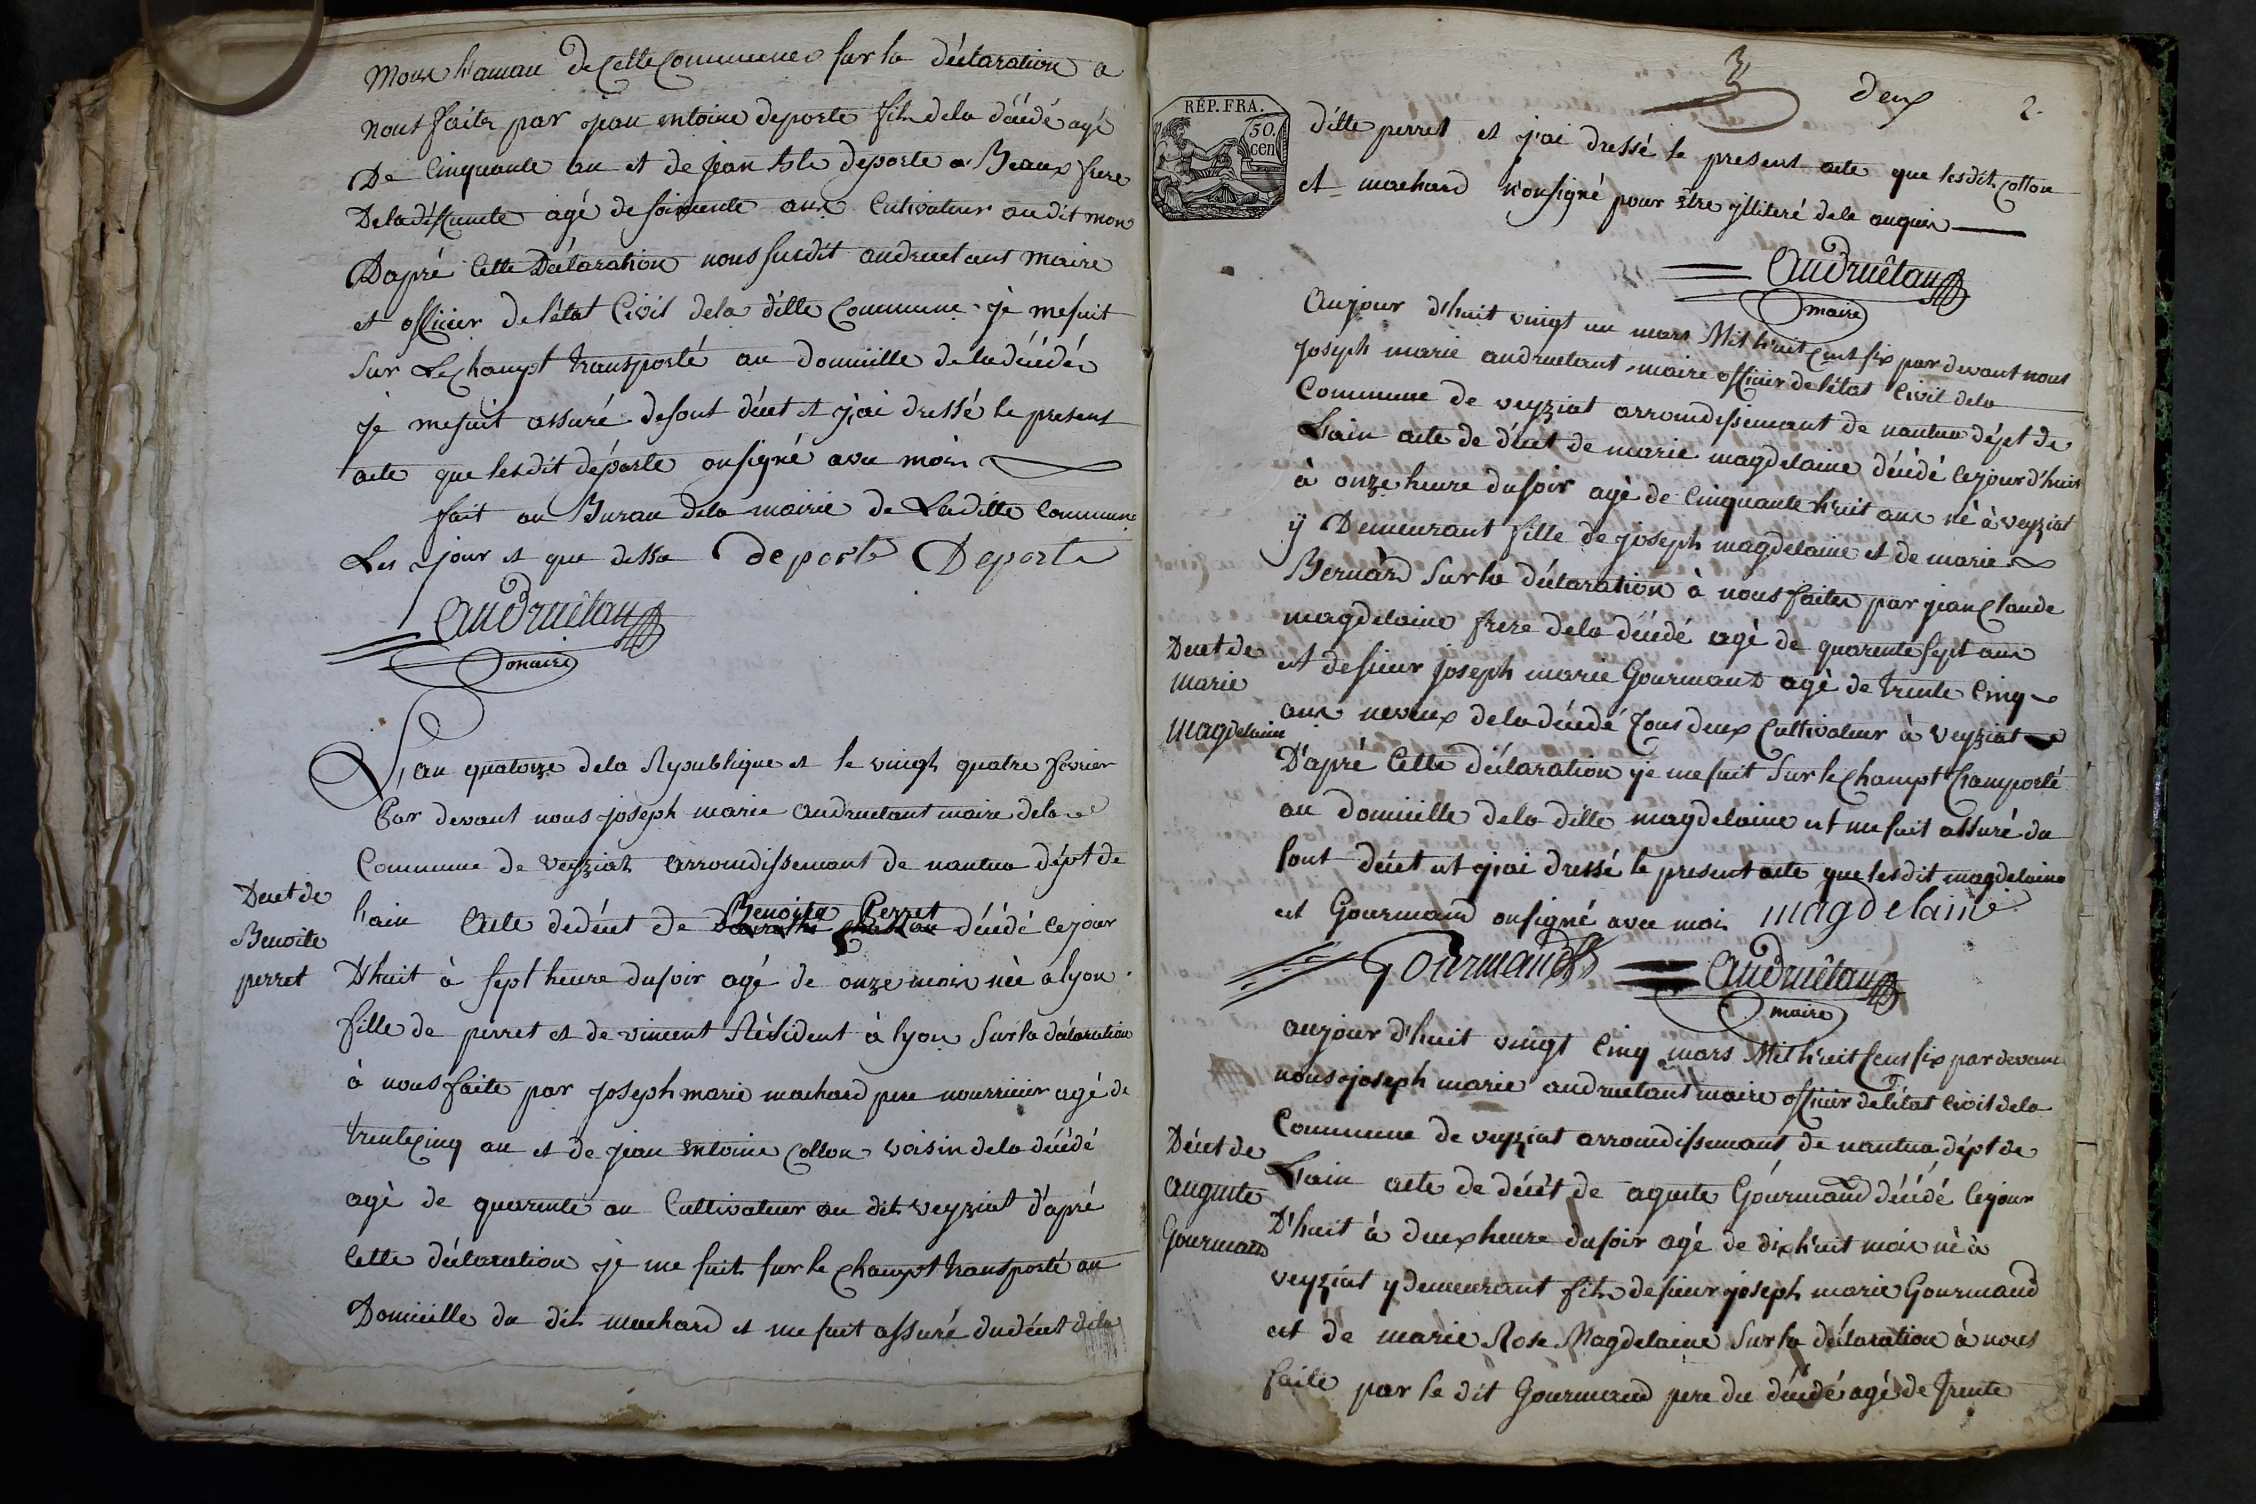 de Cette Commune sur la déclaration a
nous faite par jean entoine deporte fils dela décédé agé
De Cinquante an et de jean deporte Beaux frere
Deladéfuncte agé de soixente ans Cultivateur audit mon
Dapré Cette Déclaration nous susdit andruetant maire
et officier de l'état Civil dela ditte Commune je mesuit
sur Le champt transporté au domicille deladécédé
je mesuit assuré desont décet et j'ai dressé le present
acte que lesdit déporte onsigné avec moi
fait au Burau dela mairie de Laditte Commune
Les jour et que dessu deporte Deporte
andruétan
maire
L'an quatorze dela Republique et le vingt quatre fevrier
Par devant nous joseph marie andruetant maire dela
Commune de veyziat arrondissemant de nantua dépt de
Decet de
Benoite
perret
Benoite Perret
lain acte dedécet de décédé cejour
D'huit à sept heure dusoir agé de onze mois née à lyon
fille de perret et de vincent Résident à lyon sur la déclaration
à nous faite par joseph marie machard pere nourricier agé de
trentecinq an et de jean entoine Collon voisin dela décédé
agè de quarente an Cultivateur au dit veyziat d'apré
Cette déclaration je me suit sur le champt transporté au
Domicille du dit machard et me suit assuré dudécet dela
deux 2
RÉP. FRA.
50.
cen
ditte perret et j'ai dressé le present acte que lesdit Collon
et machard n'onsigné pour être illiteré dele enquis
andruétan
maire
aujour d'huit vingt un mars Mil huit Cent six par devant nous
joseph marie andruetant maire officier del'état Civil dela
Commune de veyziat arrondissemant de nantua dépt de
Lain acte de décet de marie magdelaine décédé cejourd'huit
à onze heure dusoir agé de Cinquante huit ans né à veyziat
ÿ Demeurant fille de joseph magdelaine et de marie
Bernard sur la déclaration à nous faites par jean Claude
magdelaine frere dela décédé agé de quarente sept ans
Decet de
marie
magdelaine
et desieur joseph marie Gourmand agé de trente Cinq
ans neveux dela décédé tous deux Cultivateur à veyziat
D'apré Cette déclaration je me suit sur le champt transporté
au domicille dela ditte magdelaine et me suit assuré du
sont décet et j'ai dressé le present acte que lesdit magdelaine
et Gourmand onsigné avec moi magdelaine
Gourmand andruétan
maire
aujour d'huit vingt Cinq mars Mil huit Cent six par devant
nous joseph marie andruetant maire officier del'état Civil dela
Commune de veyziat arrondissemant de nantua dépt de
Décet de
auguste
Gourmand
Lain acte de décèt de aguste Gourmand décédé cejour
D'huit à deux heure dusoir agé de dix huit mois né à
veyziat y demeurant fils desieur joseph marie Gourmand
et de marie Rose Magdelaine sur la déclaration à nous
faite par le dit Gourmand pere du décédé agé de trente